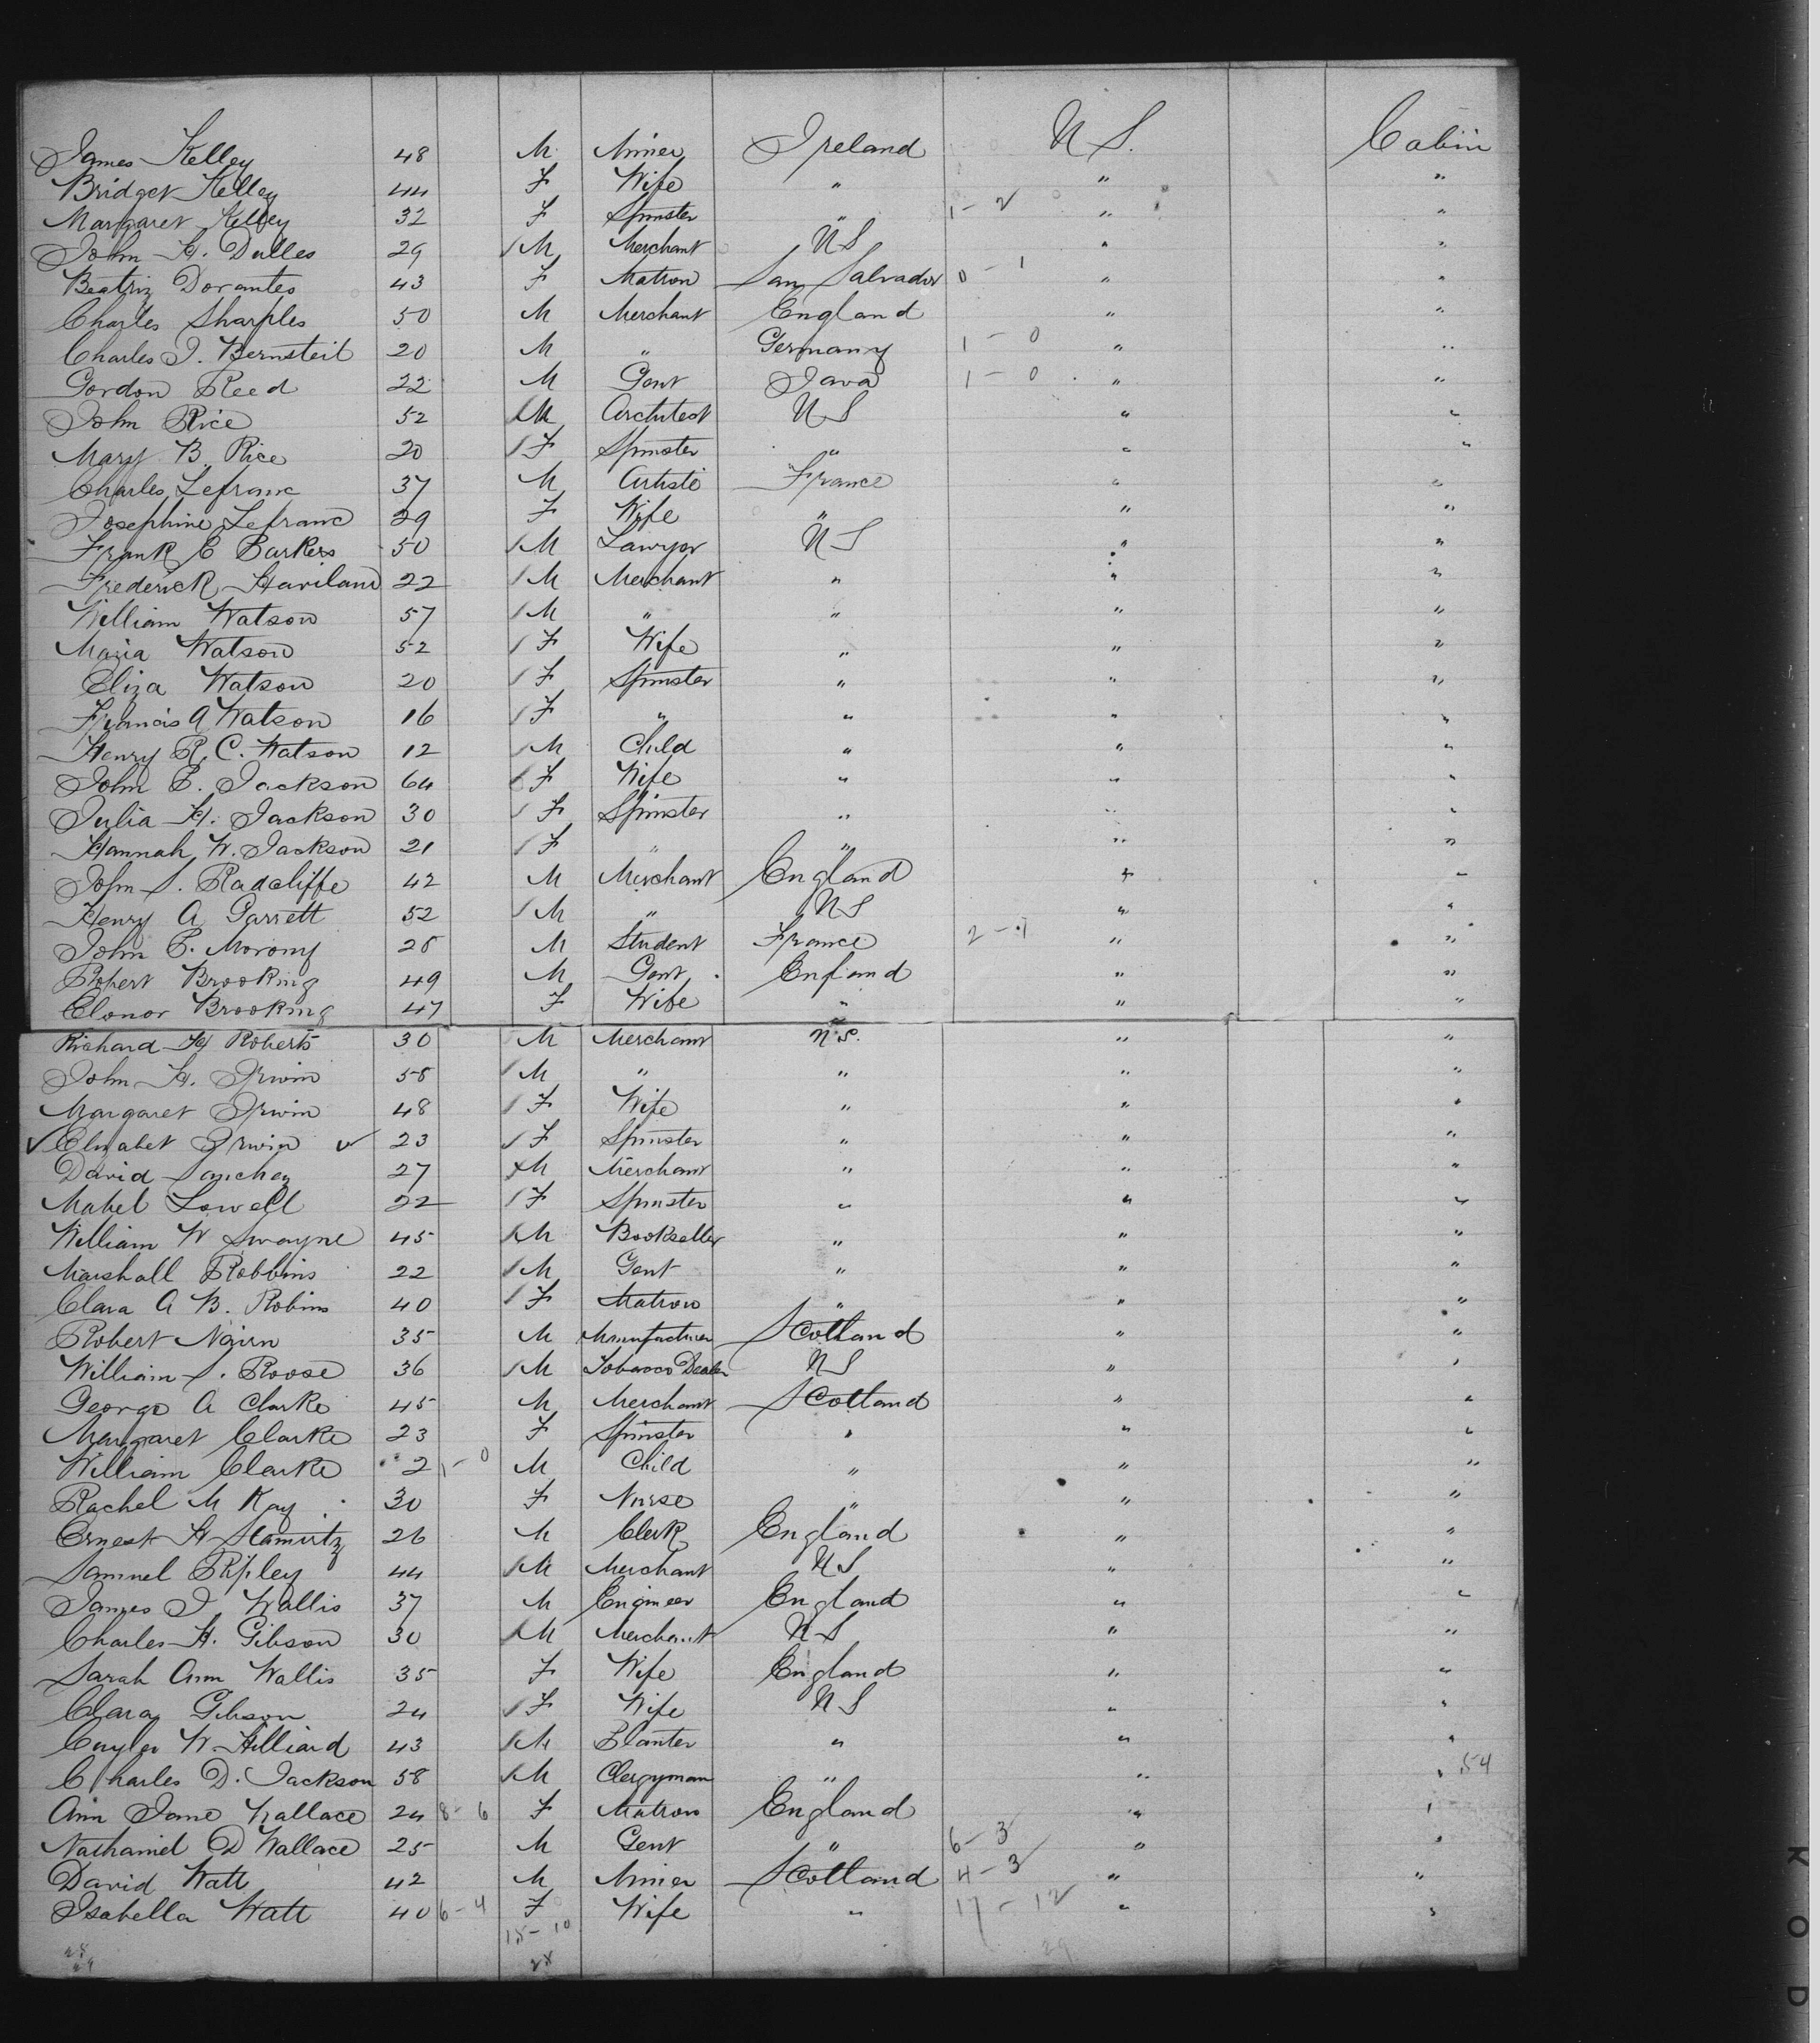 James Kelley 48 M Miner Ireland U S. Cabin
Bridget Kelley 44 F Wife " " "
Margaret Kelley 32 F Spinster " 1-2 " "
John H. Dulles 29 M Merchant U S " "
Beatriz Dorantes 43 F Matron San Salvador 0-1 " "
Charles Sharples 50 M Merchant England " "
Charles J. Bernsteil 20 M " Germany 1-0 " "
Gordon Reed 22 M Gent Java 1-0 " "
John Rice 52 M Architect U S " "
Mary B. Rice 20 F Spinster " " "
Charles Lefranc 37 M Artiste France " "
Josephine Lefranc 29 F Wife " " "
Frank E Barkers 50 M Lawyer U S " "
Frederick Haviland 22 M Merchant " " "
William Watson 57 M " " " "
Maria Watson 52 F Wife " " "
Eliza Watson 20 F Spinster " " "
Francis A Watson 16 F " " " "
Henry R. C. Watson 12 M Child " " "
John P. Jackson 64 F Wife " " "
Julia H. Jackson 30 F Spinster " " "
Hannah W. Jackson 21 F " " " "
John S. Radcliffe 42 M Merchant England " "
Henry A Garrett 52 M " U S " "
John P. Morony 28 M Student France 2-1 " "
Robert Brooking 49 M Gent England " "
Elonor Brooking 47 F Wife " " "
Richard H Roberts 30 M Merchant U.S. " "
John H. Irwin 58 M " " " "
Margaret Irwin 48 F Wife " " "
✓ Elizabet Irwin ✓ 23 F Spinster " " "
David Sanchez 27 M Merchant " " "
Mabel Lowell 22 F Spinster " " "
William W Swayne 45 M Bookseller " " "
Marshall Robbins 22 M Gent " " "
Clara A B. Robins 40 F Matron " " "
Robert Nairn 35 M Manufacturer Scotland " "
William S. Roose 36 M Tobacco Dealer U S " "
George A Clarke 45 M Merchant Scotland " "
Margaret Clarke 23 F Spinster " " "
William Clarke 2 1-0 M Child " " "
Rachel M Kay 30 F Nurse " " "
Ernest H 26 M Clerk England " "
Samuel Ripley 44 M Merchant U S " "
James J Wallis 37 M Engineer England " "
Charles H. Gibson 30 M Merchant U S " "
Sarah Ann Wallis 35 F Wife England " "
Clara Gibson 24 F Wife U S " "
Cuyler W. Hilliard 43 M Planter " " "
Charles D. Jackson 58 M Clergyman " " " 54
Ann Jane Wallace 24 8-6 F Matron England " "
Nathaniel D Wallace 25 M Gent " 6-3 " "
David Watt 42 M Miner Scotland 4-3 " "
Isabella Watt 40 6-4 F Wife " 17-12 " "
15-10
28 29
29 28